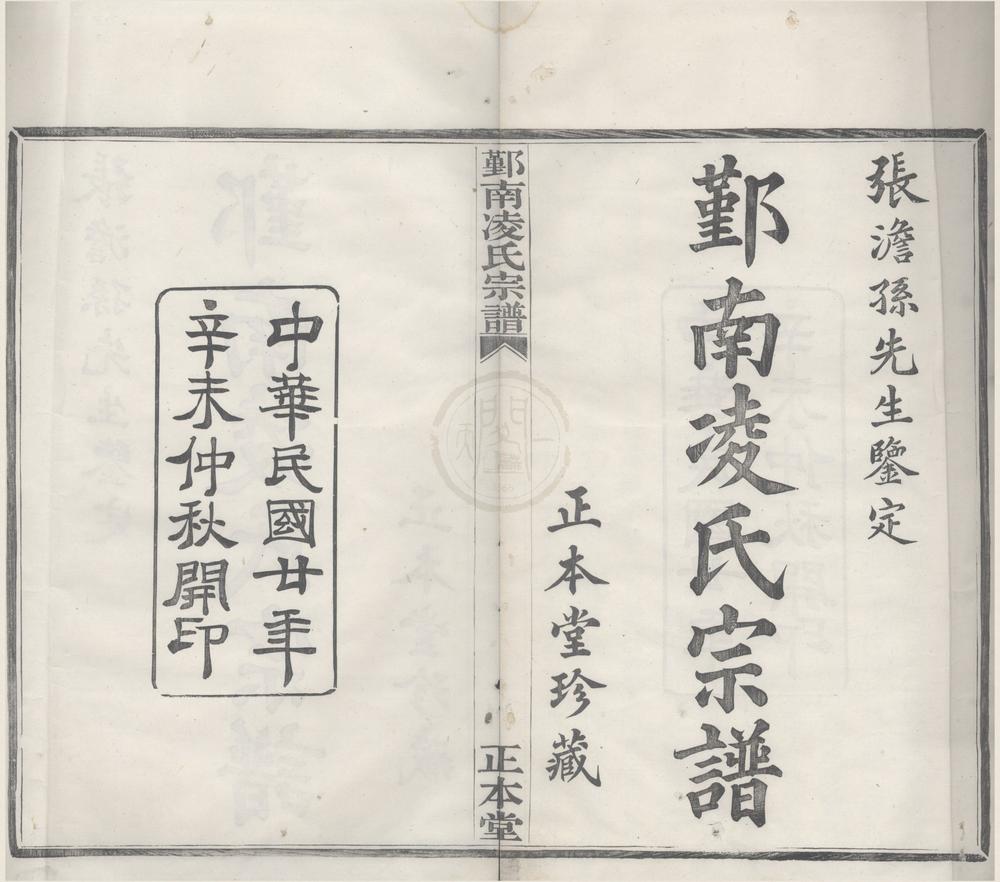 張澹孫先生鑒定
鄞南凌氏宗譜
正本堂珍藏
鄞南凌氏宗譜
正本堂
中華民國廿年
辛未仲秋開印